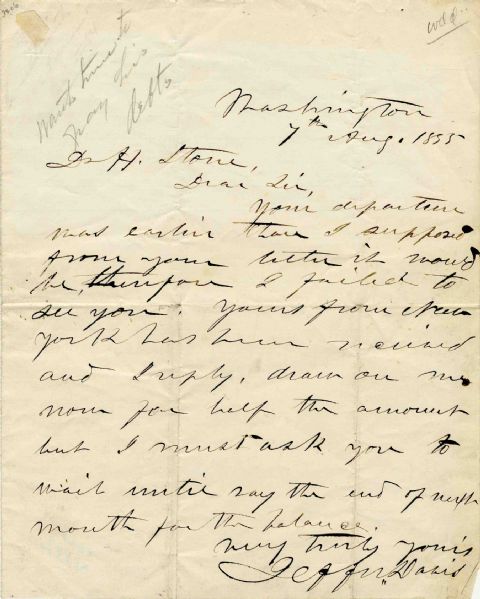 Wants time to
pay his
debts
Washington
7th Aug. 1855
Dr H. Stone,
Dear Sir,
Your departure
was earlier than I supposed
from your letter it would
be, therefore I failed to
see you. Yours from New
York has been received
and I reply, draw on me
now for half the amount
but I must ask you to
wait until say the end of next
month for the balance.
very truly yours
Jeffn Davis